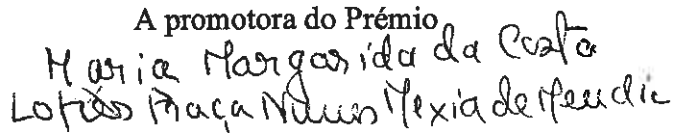 A promotora do Prémio
Maria Margarida da Costa
Praça Nunes Mexia de